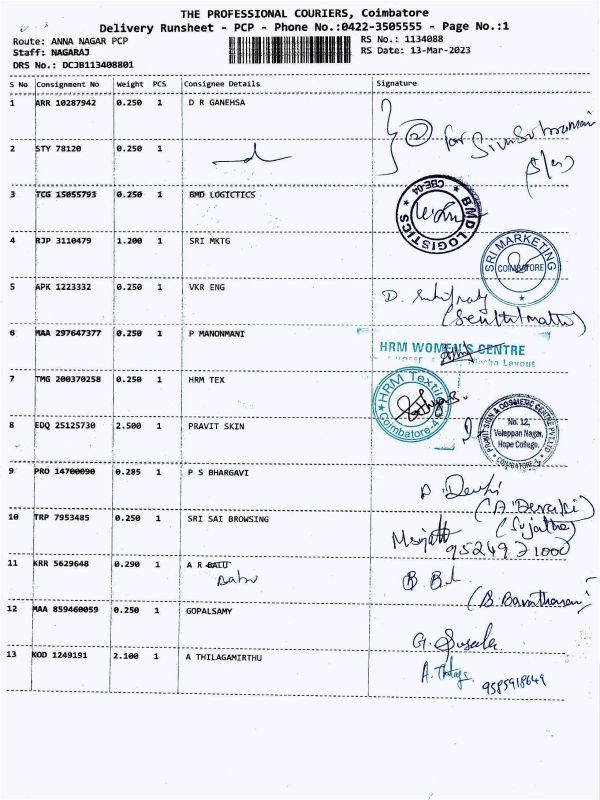 THE PROFESSIONAL COURIERS, Coimbatore
Delivery Runsheet - PCP - Phone No.:0422-3505555 - Page No.:1
Route: ANNA NAGAR PCP
RS No.: 1134088
Staff: NAGARAJ
RS Date: 13-Mar-2023
DRS No.: DCJB113408801
S No Consignment No Weight PCS Consignee Details Signature
1 ARR 10287942 0.250 1 D R GANEHSA
for
2 STY 78120 0.250 1
3 TCG 15055793 0.250 1 BMD LOGICTICS
BMD LOGISTICS CBE-04
4 RJP 3110479 1.200 1 SRI MKTG
SRI MARKETING COIMBATORE
5 APK 1223332 0.250 1 VKR ENG
D.
6 MAA 297647377 0.250 1 P MANONMANI
HRM WOMEN'S CENTRE
Layout
7 TMG 200370258 0.250 1 HRM TEX
HRM Textile Coimbatore-4
8 EDQ 25125730 2.500 1 PRAVIT SKIN
No. 12,
Veleppan Nagar,
Hope College,
9 PRO 14700090 0.285 1 P S BHARGAVI
D. Devki
(A. Devaki)
10 TRP 7953485 0.250 1 SRI SAI BROWSING
(Sujatha)
9524971000
11 KRR 5629648 0.290 1 A R BALU
Babu
12 MAA 859460059 0.250 1 GOPALSAMY
G. Suseela
13 KOD 1249191 2.100 1 A THILAGAMIRTHU
A. Thilaga
9585918649